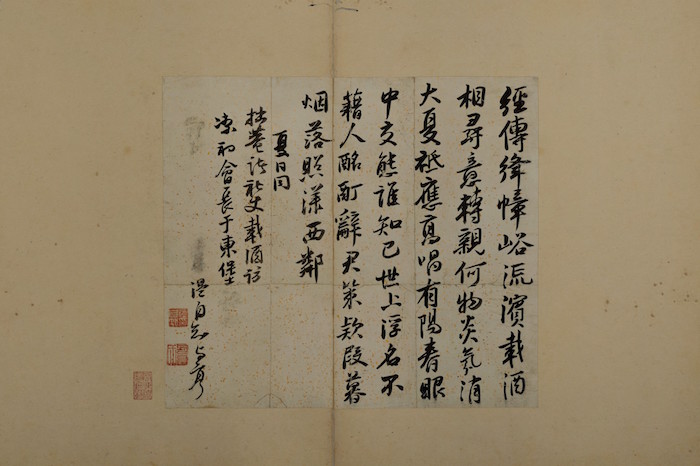 經傳絳幛峪流濱載酒
相尋意轉親何物炎氛消
大夏秪應高唱有陽春眼
中交態誰知己世上浮名不
藉人酩酊辭君策欵段暮
烟落照漾西鄰
夏日同
拙菴諸社丈載酒訪
和會長于東堡
溫自知